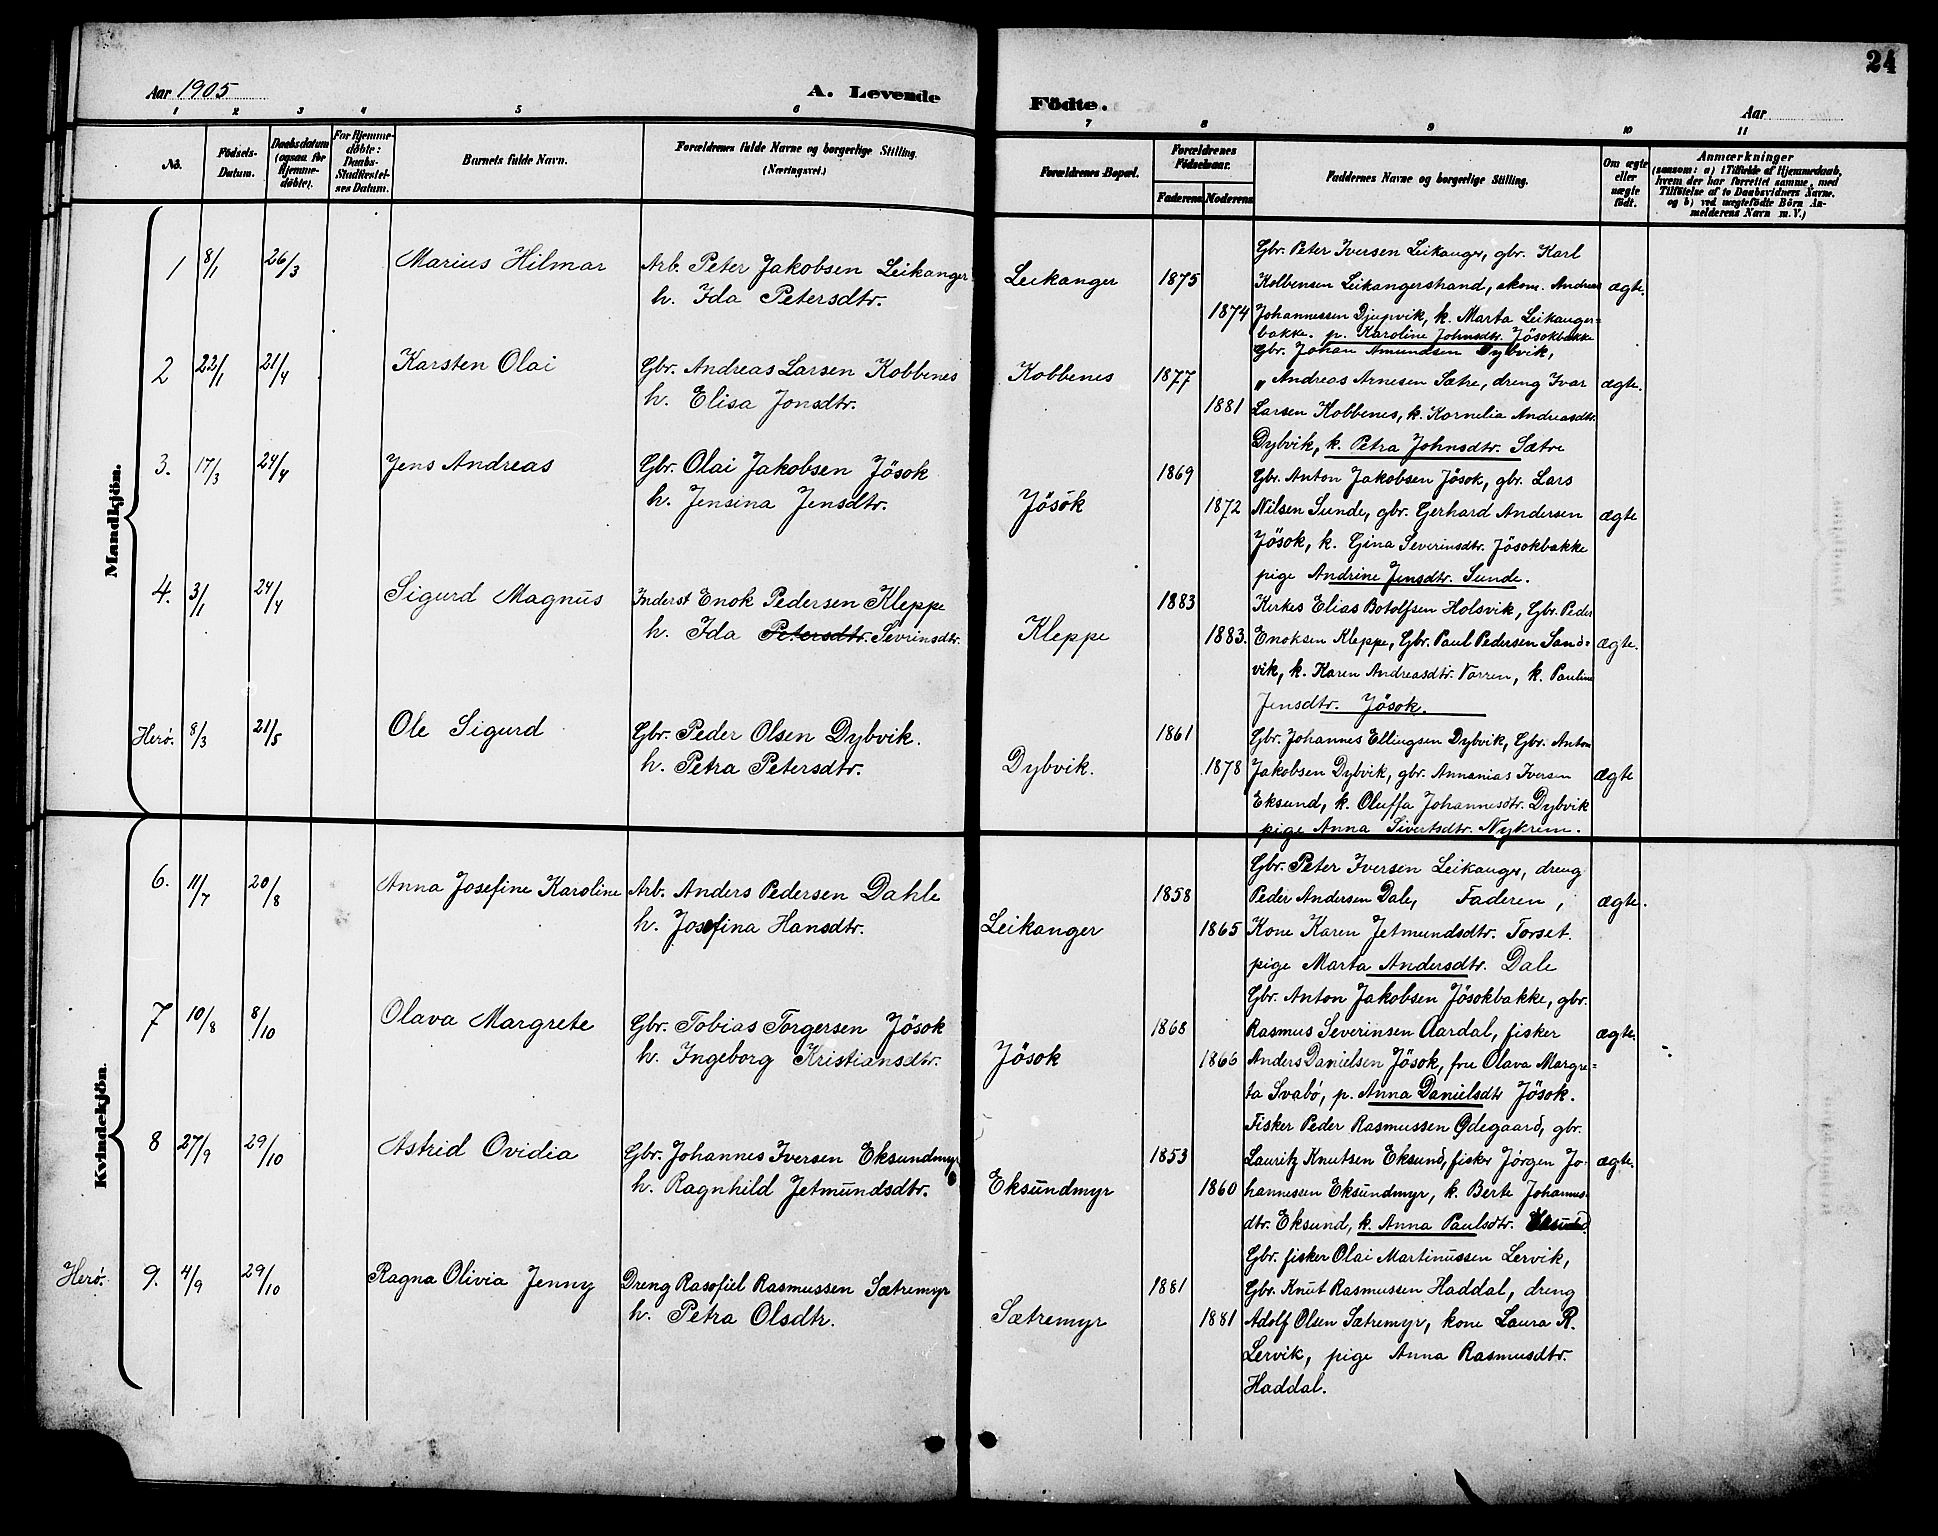 24
Aar 1905
A. Levende
Födte.
Aar
1 2 3 4 5 6
7 8 9 10 11
No.
Födsels-Datum.
Daabsdatum (ogsaa for Hjemme-döbte).
For Hjemme-döbte: Daabs-Stadfæstel-ses Datum.
Barnets fulde Navn.
Forældrenes fulde Navne og borgerlige Stilling.
(Næringsvei.)
Forældrenes Bopæl.
Forældrenes Födselsaar.
Faderens Moderens
Faddernes Navne og borgerlige Stilling.
Om ægte eller uægte födt.
Anmærkninger
(saasom: a) i Tilfælde af Hjemmedaab,
hvem der har forrettet samme, med
Tilföielse af to Daabsvidners Navne.
og b) ved uægtefödte Börn An-
melderens Navn m. V.)
Mandkjön.
1 8/1 26/3 Marius Hilmar
Arb. Peter Jakobsen Leikanger
h. Ida Petersdtr.
Leikanger 1875 1874
Gbr. Peter Iversen Leikanger, gbr. Karl
Kolbensen Leikangerstrand, skom. Andreas
Johannessen Djupvik, k. Marta Leikanger=
bakke. p. Karoline Johnsdtr. Jösokbakke
ægte.
2 22/1 21/4 Karsten Olai
Gbr. Andreas Larsen Kobbenes
h. Elisa Jonsdtr.
Kobbenes 1877 1881
Gbr. Johan Amundsen Dybvik,
" Andreas Arnesen Sætre, dreng Ivar
Larsen Kobbenes, k. Kornelia Andreasdtr.
Dybvik, k. Petra Johnsdtr. Sætre
ægte.
3. 17/3 24/4 Jens Andreas
Gbr. Olai Jakobsen Jösok
h. Jensina Jensdtr.
Jösok 1869 1872
Gbr. Anton Jakobsen Jösok, gbr. Lars
Nilsen Sunde, gbr. Gerhard Andersen
Jösok, k. Gina Severinsdtr. Jösokbakke
pige Andrine Jensdtr. Sunde.
ægte
4. 3/1 24/4 Sigurd Magnus
Inderst Enok Pedersen Kleppe
h. Ida Petersdtr. Sevrinsdtr.
Kleppe 1883 1883.
Kirkes Elias Botolfsen Holsvik, Gbr. Peder
Enoksen Kleppe, Gbr. Paul Pedersen Sand=
vik, k. Karen Andreasdtr. Vorren, k. Pauline
Jensdtr. Jösok.
ægte.
Herö. 8/3 21/5 Ole Sigurd
Gbr. Peder Olsen Dybvik.
h. Petra Petersdtr.
Dybvik. 1861 1878
Gbr. Johannes Ellingsen Dybvik, Gbr. Anton
Jakobsen Dybvik, gbr. Annanias Iversen
Eksund, k. Oluffa Johannesdtr. Dybvik
pige Anna Sivertsdtr. Nykrem.
ægte
Kvindekjön.
6. 11/7 20/8 Anna Josefine Karoline
Arb. Anders Pedersen Dahle
h. Josefina Hansdtr.
Leikanger 1858 1865
Gbr. Peter Iversen Leikanger, dreng
Peder Andersen Dale, Faderen,
Kone Karen Jetmundsdtr. Torset.
pige Marta Andersdtr. Dale
ægte.
7 10/8 8/10 Olava Margrete
Gbr. Tobias Torgersen Jösok
h. Ingeborg Kristiansdtr.
Jösok 1868 1866
Gbr. Anton Jakobsen Jösokbakke, gbr.
Rasmus Severinsen Aardal, fisker
Anders Danielsen Jösok, fru Olava Margre=
ta Svabö, p. Anna Danielsdtr Jösok.
ægte.
8 27/9 29/10 Astrid Ovidia
Gbr. Johannes Iversen Eksundmyr
h. Ragnhild Jetmundsdtr.
Eksundmyr 1853 1860
Fisker Peder Rasmussen Ödegaard, gbr.
Lauritz Knutsen Eksund, fisker Jörgen Jo-
hannessen Eksundmyr, k. Berte Johannes-
dtr. Eksund, k. Anna Paulsdtr. Eksund
ægte.
Herö. 9. 4/9 29/10 Ragna Olivia Jenny
Dreng Rasofiel Rasmussen Sætremyr
h. Petra Olsdtr.
Sætremyr 1881 1881
Gbr. fisker Olai Martinussen Lervik,
Gbr. Knut Rasmussen Haddal, dreng
Adolf Olsen Sætremyr, kone Laura R.
Lervik, pige Anna Rasmusdtr.
Haddal.